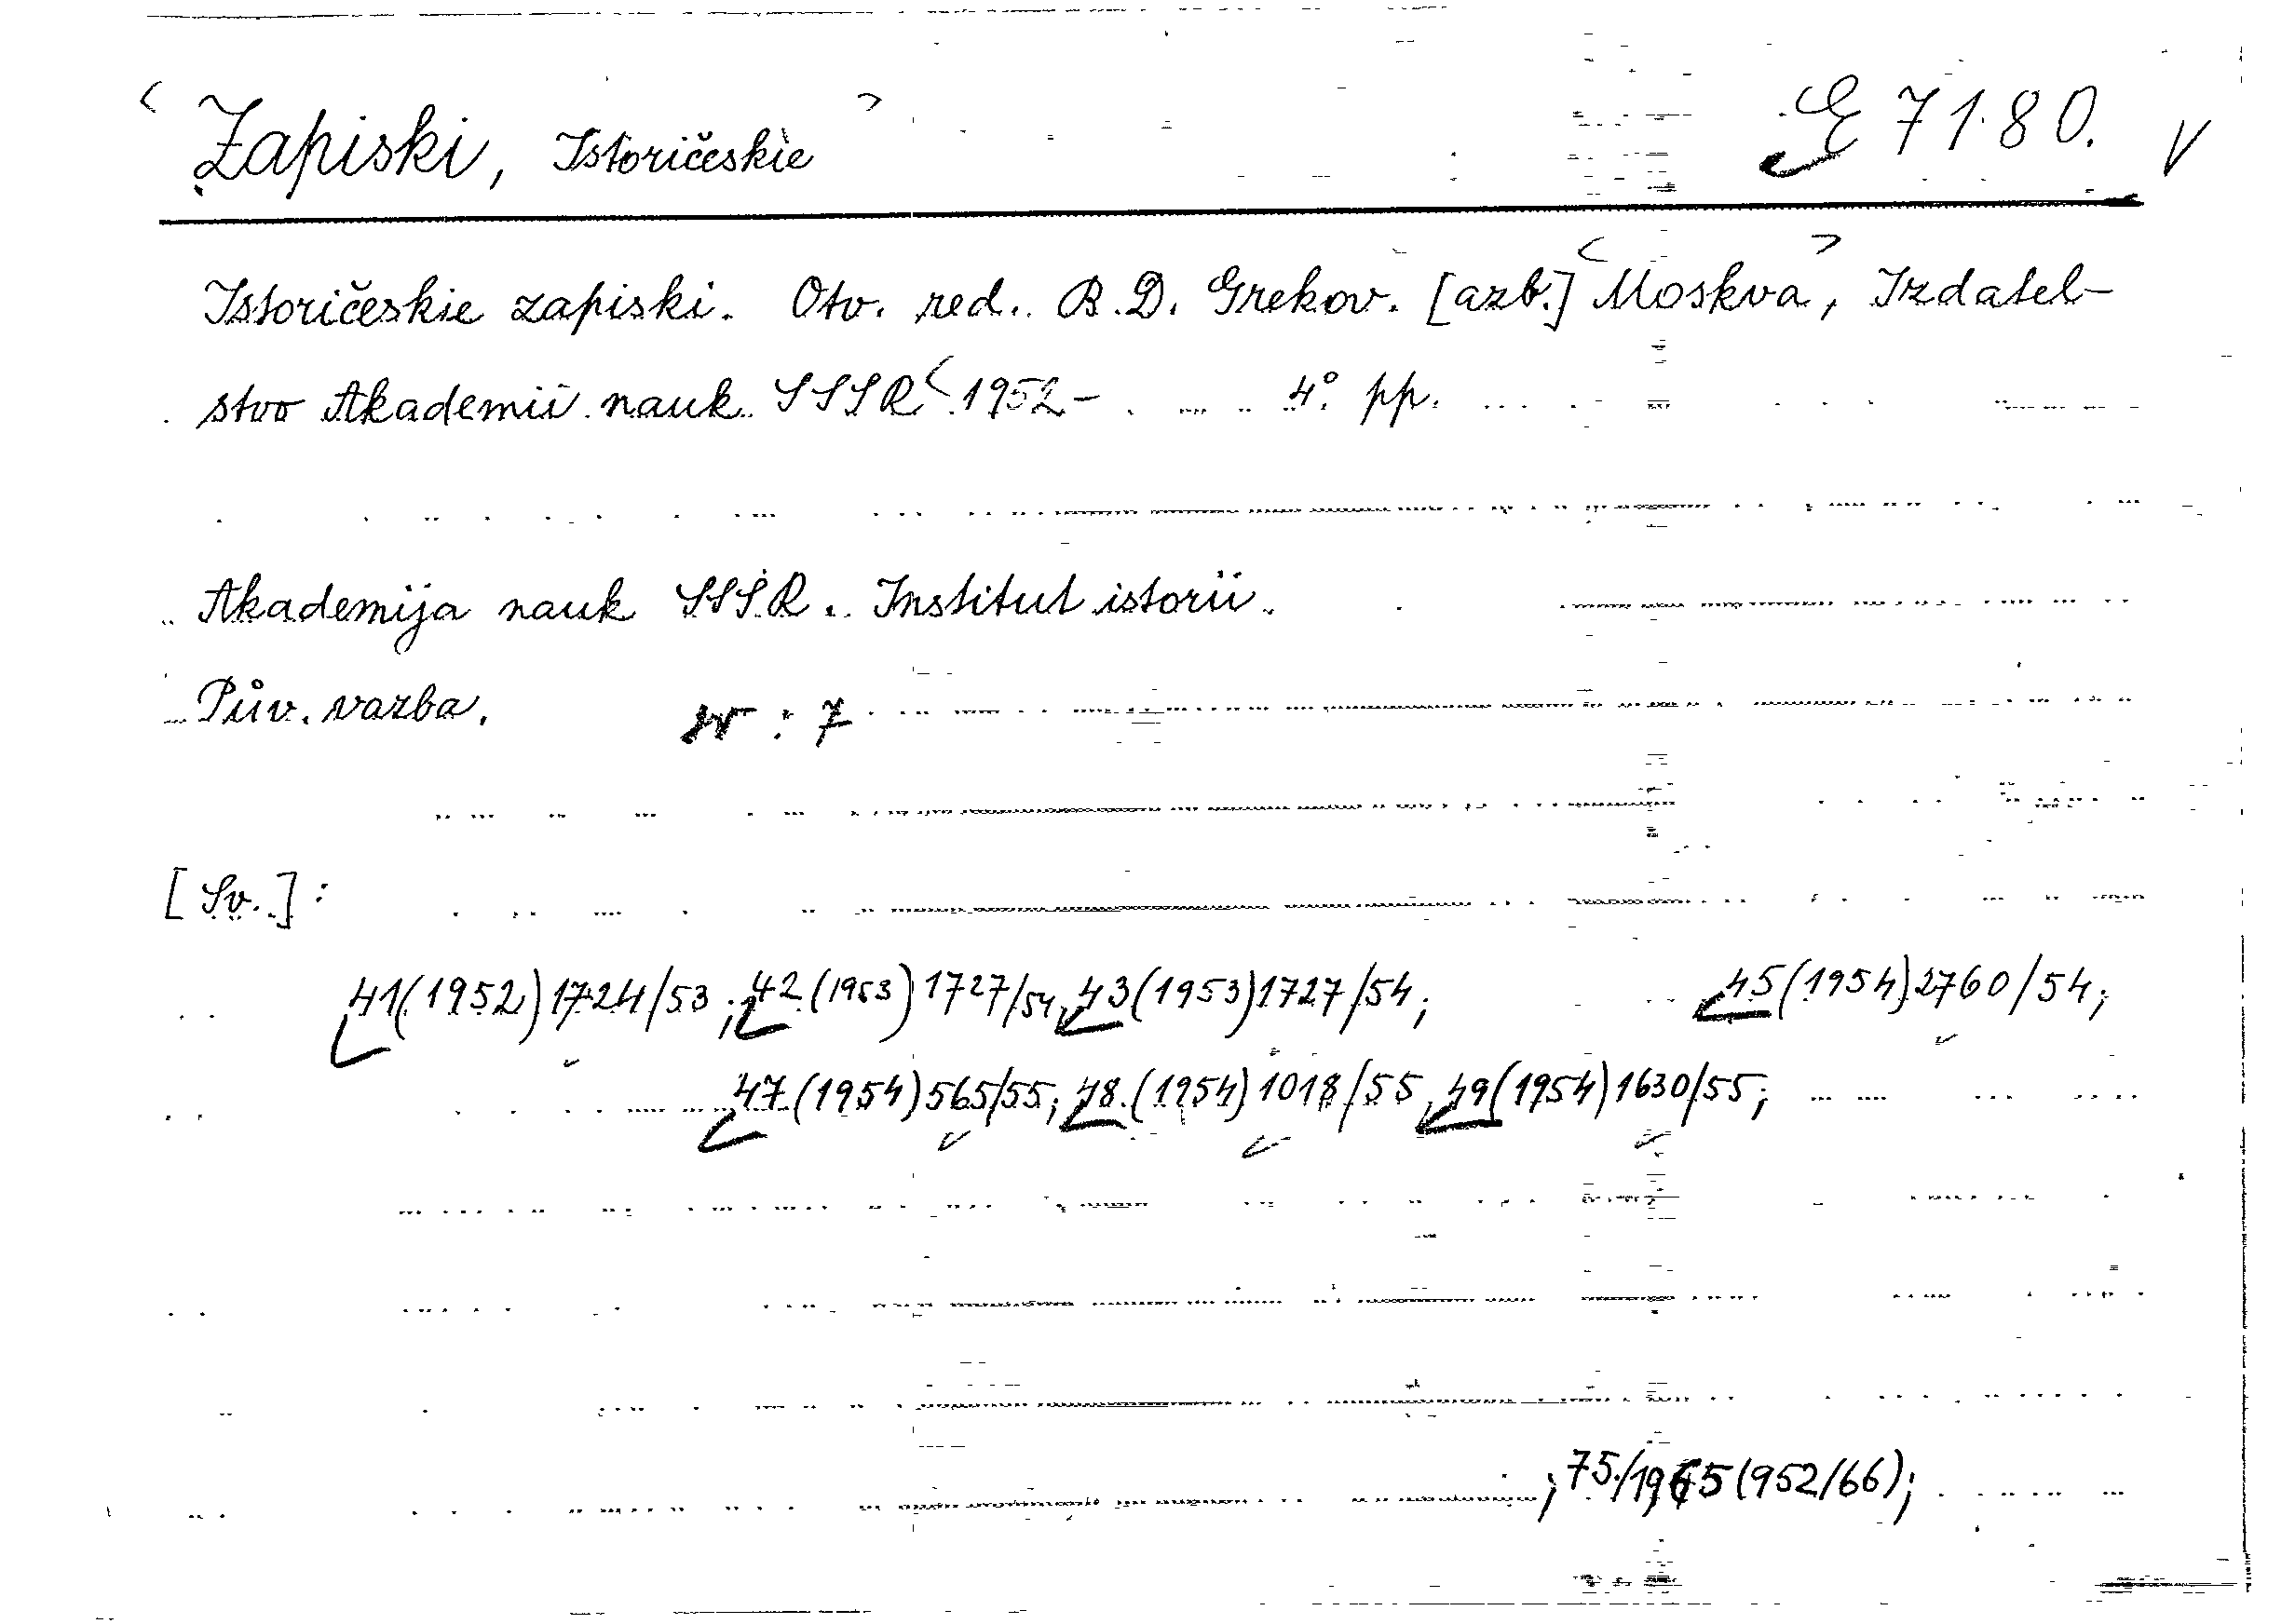 ‹ Zapiski, Istoričeskie › E 7180. V
Istoričeskie zapiski. Otv. red. B. D. Grekov. [azb.] ‹Moskva›, Izdatel-
stvo Akademii nauk SSSR ‹ 1952- 4° pp.
Akademija nauk SSSR. Institut istorii.
Pův. vazba. sv : 7
[Sv.]:
41(1952)1724/53; 42(1953)1727/54, 43(1953)1727/54; 45(1954)2760/54;
47(1954)565/55; 48.(1954)1018/55, 49(1954)1630/55;
; 75./1965(952/66);